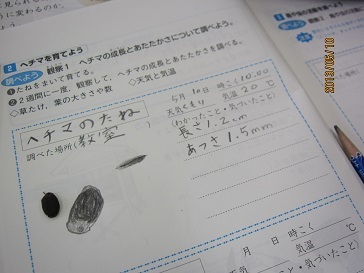 2 ヘチマを育てよう
調べよう 観察1 ヘチマの成長とあたたかさについて調べよう。
❶たねをまいて育てる。
❷2週間に一度、観察して、ヘチマの成長とあたたかさを調べる。
◇草たけ、葉の大きさや数 ◇天気と気温
ヘチマのたね
調べた場所(教室)
5月10日 時こく10:00
天気くもり 気温20℃
(わかったこと・気づいたこと)
長さ1.2cm
あつさ1.5mm
月 日 時こく
気温 ℃
・気づいたこと)
2013/05/10